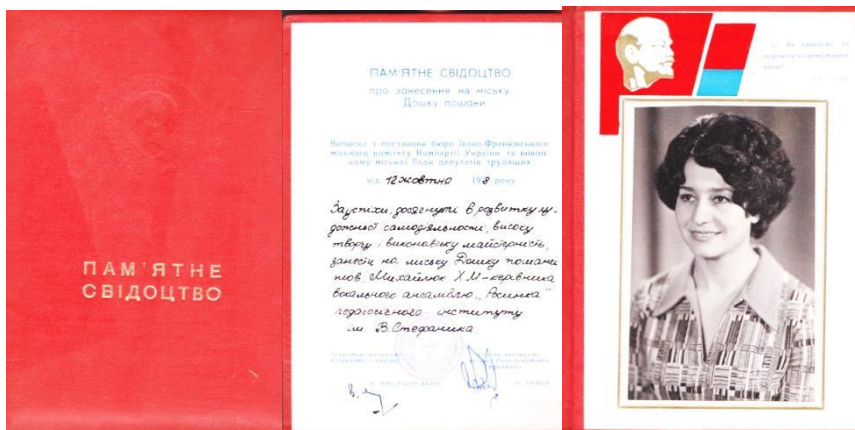 ПАМ'ЯТНЕ
СВІДОЦТВО
ПАМ'ЯТНЕ СВІДОЦТВО
про занесення на міську
Дошку пошани
Виписка з постанови бюро Івано-Франківського
міського комітету Компартії України та викон-
кому міської Ради депутатів трудящих
від 12 жовтня 1978 року
За успіхи, досягнуті в розвитку ху-
дожньої самодіяльности, високу
творчу і виконавську майстерність,
занести на міську Дошку пошани
тов. Михайлюк Х.М – керівника
вокального ансамблю „Росинка"
педагогічного інституту
ім. В. Стефаника